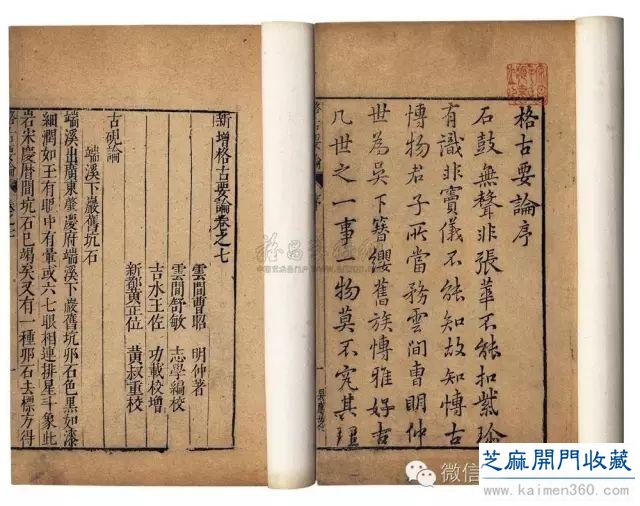 格古要論序
石鼓無聲非張華不能扣紫
有識非竇儀不能知故知博古
博物君子所當務雲間曹明仲
世為吳下簪纓舊族博雅好古
凡世之一事一物莫不究其理
格古要論 序
新增格古要論卷之七
雲間曹昭 明仲著
雲間舒敏 志學編校
吉水王佐 功載校增
新都黃正位 黃叔重校
古硯論
端溪下巖舊坑石
端溪出廣東肇慶府端溪下巖舊坑卵石色黑如漆
細潤如玉有眼中有暈或六七眼相連排星斗象此
岩宋慶曆間坑石已竭矣又有一種卵石去標方得
格古要論 卷之七
微信
芝麻開門收藏
www.kaimen360.com